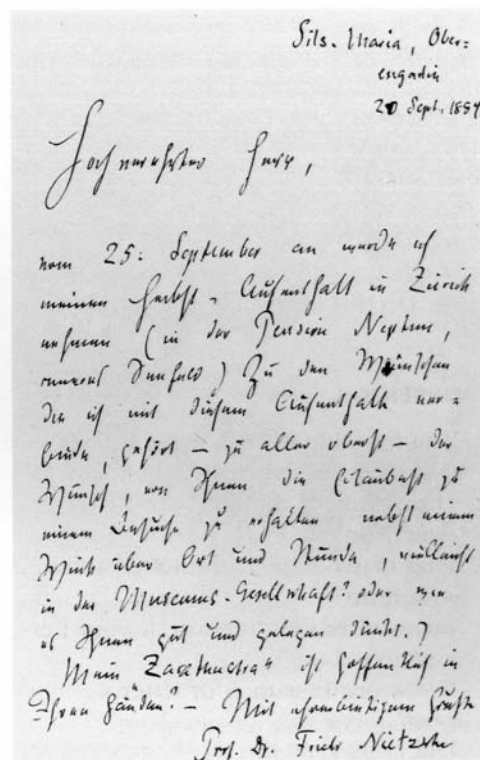 Sils-Maria, Ober=
engadin
20 Sept. 1884
Hochverehrter Herr,
vom 25. September an werde ich
meinen Herbst-Aufenthalt in Zürich
nehmen (in der Pension Neptun,
) Zu den Wünschen
die ich mit diesem Aufenthalt ver=
binde, gehört – zu aller oberst – der
Wunsch, von Ihnen die Erlaubniß zu
einem Besuche zu erhalten nebst einem
Wink über Ort und Stunde, vielleicht
in der Museums-Gesellschaft? oder wie
es Ihnen gut und gelegen dünkt.)
Mein Zarathustra" ist hoffentlich in
Ihren Händen? – Mit Gruße
Prof. Dr. Friedr Nietzsche